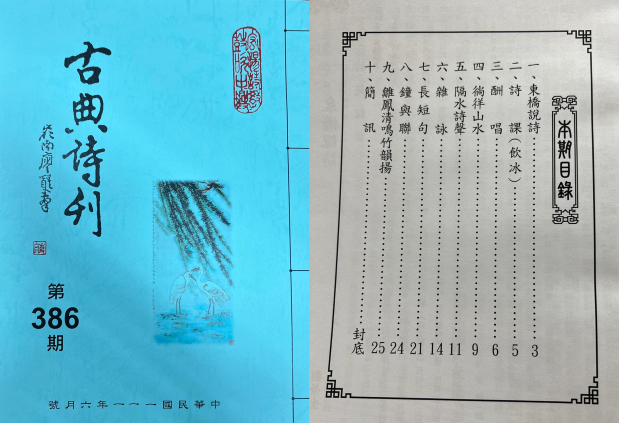 古典詩刊
第
386
期
中華民國一一一年六月號
本期目錄
一、東橋說詩……3
二、詩課(飲冰)……5
三、酬唱……6
四、徜徉山水……9
五、隔水詩聲……11
六、雜詠……14
七、長短句……21
八、鐘與聯……24
九、雛鳳清鳴竹韻揚……25
十、簡訊……封底